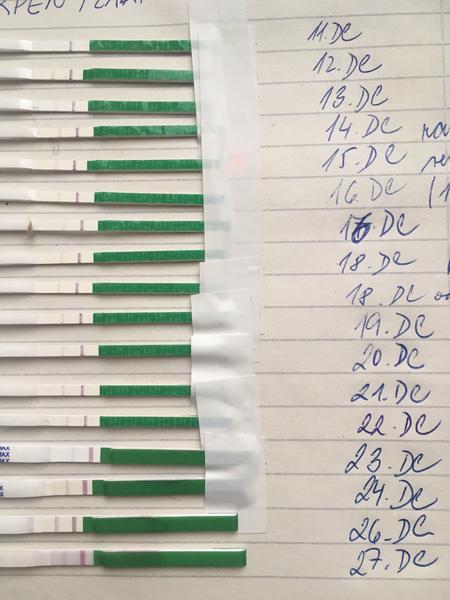 11.DC
12.DC
13.DC
14.DC
15.DC
16.DC
16.DC
18.DC
18.DC
19.DC
20.DC
21.DC
22.DC
23.DC
MAX
24.DC
26.DC
27.DC